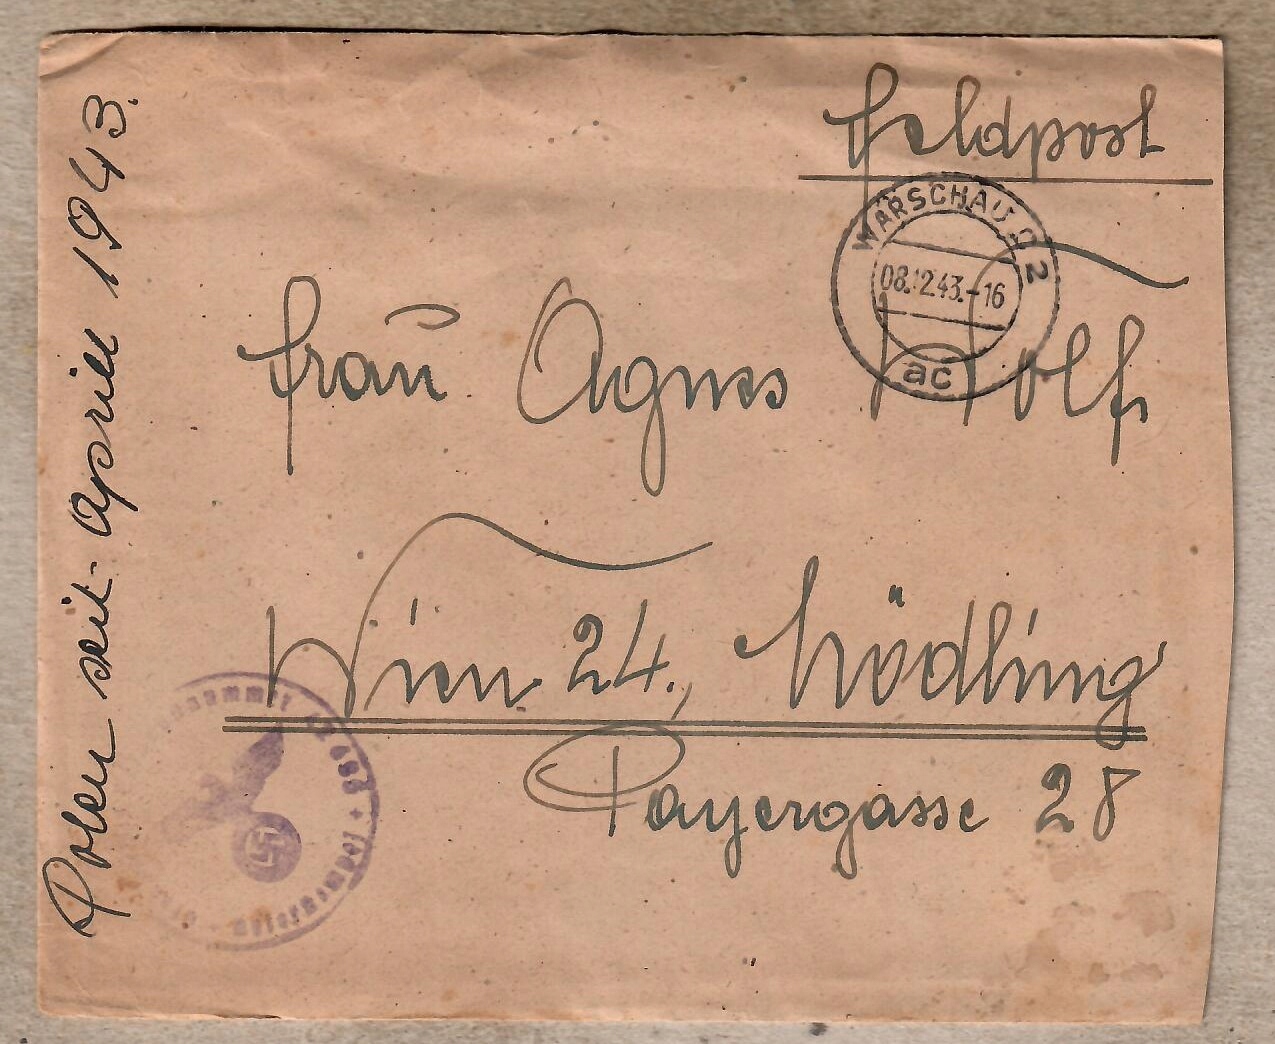 Feldpost
WARSCHAU C 2
08.12.43.-16
ac
Frau Agnes Wolf
Wien 24., Mödling
Payergasse 28
Polen seit - Aprill 1943.